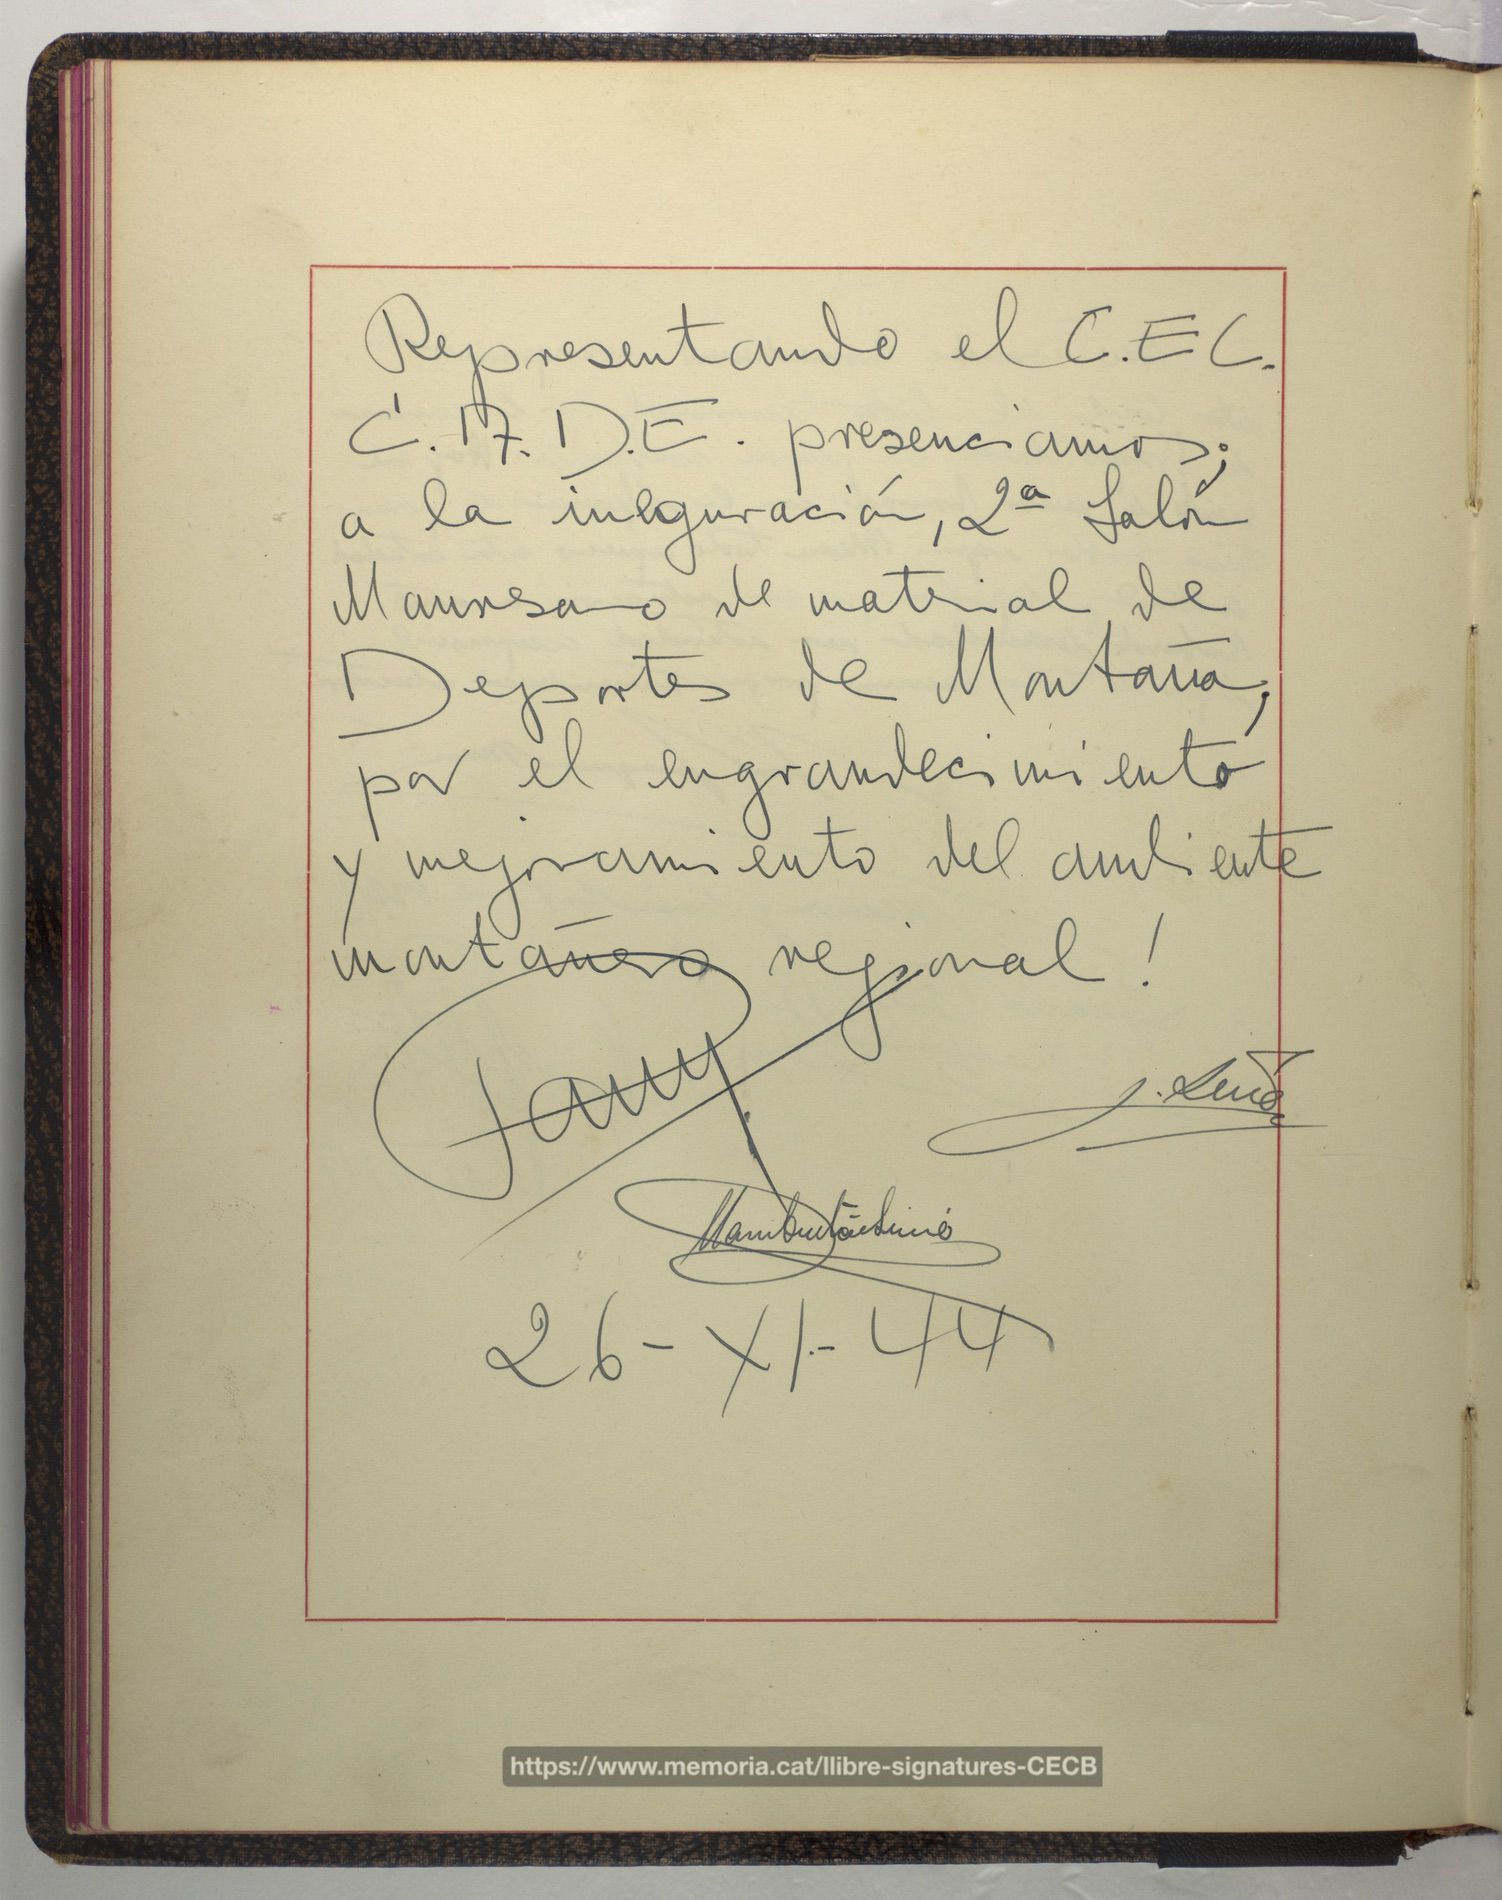 Representando el C.E.C.
C.A.D.E. presenciamos;
a la inaguración, 2ª Salón
Manresano de material de
Deportes de Montaña,
por el engrandecimiento
y mejoramiento del ambiente
montañero regional!
26-XI-44
https://www.memoria.cat/llibre-signatures-CECB